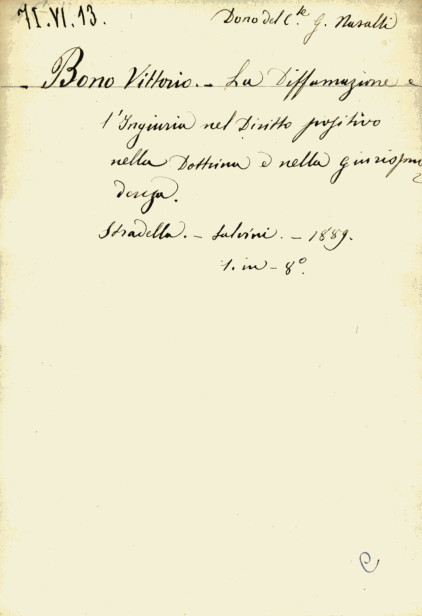 71.VI.13.
Dono del C.te G. Nasalli
Bono Vittorio. - La Diffamazione e
l'Ingiuria nel Diritto positivo
nella Dottrina e nella giurispru
denza.
Stradella. - Salvini. - 1889.
1. in - 8°.